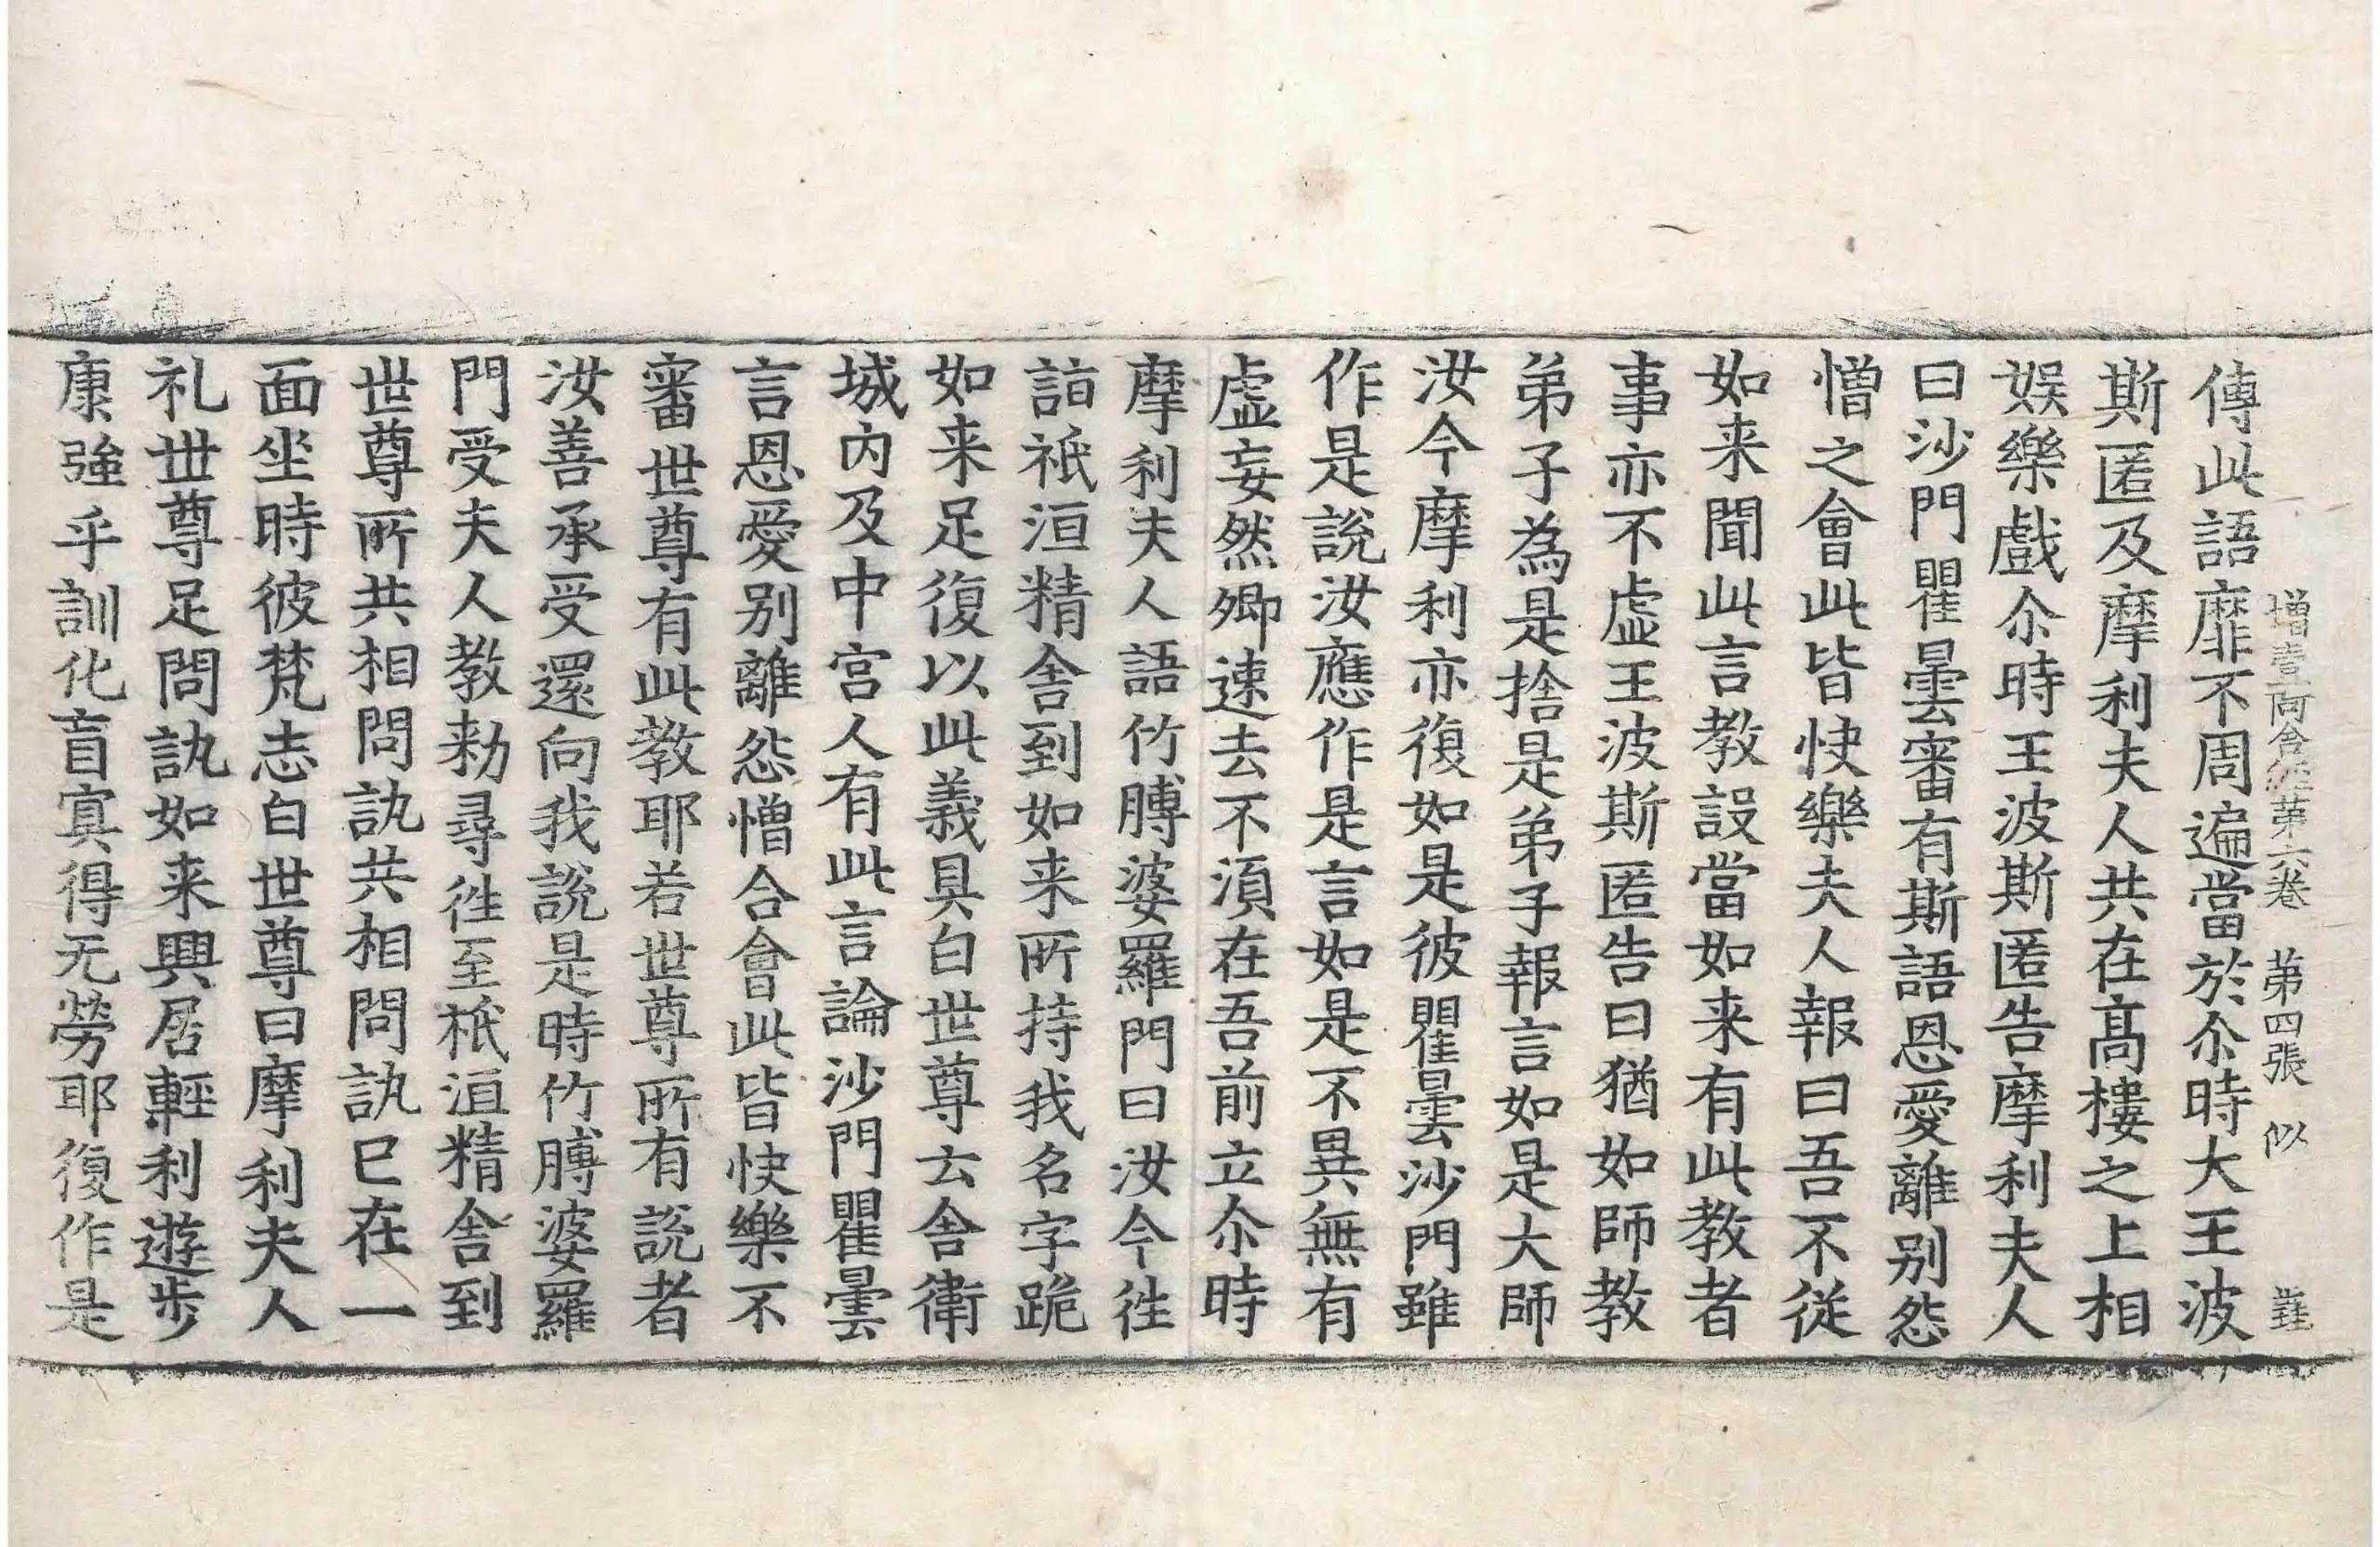 增壹阿含經第六卷 第四張 似
傳此語靡不周遍當於尒時大王波
斯匿及摩利夫人共在髙樓之上相
娛樂戲尒時王波斯匿告摩利夫人
曰沙門瞿曇審有斯語恩愛離别怨
憎之會此皆快樂夫人報曰吾不從
如来聞此言教設當如来有此教者
事亦不虛王波斯匿告曰猶如師教
弟子為是捨是弟子報言如是大師
汝今摩利亦復如是彼瞿曇沙門雖
作是說汝應作是言如是不異無有
虛妄然卿速去不湏在吾前立尒時
摩利夫人語竹膊婆羅門曰汝今往
詣祇洹精舍到如来所持我名字跪
如来足復以此義具白世尊云舍衛
城内及中宫人有此言論沙門瞿曇
言恩愛别離怨憎合會此皆快樂不
審世尊有此教耶若世尊所有說者
汝善承受還向我說是時竹膊婆羅
門受夫人教勑尋往至祇洹精舍到
世尊所共相問訊共相問訊已在一
面坐時彼梵志白世尊曰摩利夫人
礼世尊足問訊如来興居輕利遊步
康強乎訓化盲冥得无勞耶復作是